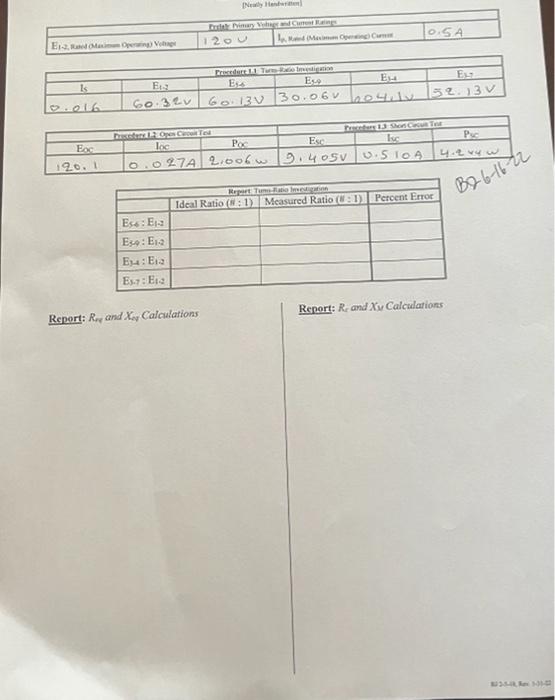 [Neatly Handwritten]
Prelab: Primary Voltage and Current Ratings
E1-2, Rated (Maximum Operating) Voltage 120V Ip, Rated (Maximum Operating) Current 0.5A
Procedure 1.1: Turns-Ratio Investigation
Is E1-2 E5-6 E5-9 E3-4 E3-7
0.016 60.32V 60.13V 30.06V 104.1V 52.13V
Procedure 1.2: Open Circuit Test Procedure 1.3: Short Circuit Test
EOC IOC POC ESC ISC PSC
120.1 0.027A 2.006w 9.405V 0.510A 4.244w
Report: Turns-Ratio Investigation
Ideal Ratio (# : 1) Measured Ratio (# : 1) Percent Error
E5-6 : E1-2
E5-9 : E1-2
E3-4 : E1-2
E3-7 : E1-2
Report: Req and Xeq Calculations
Report: Rc and XM Calculations